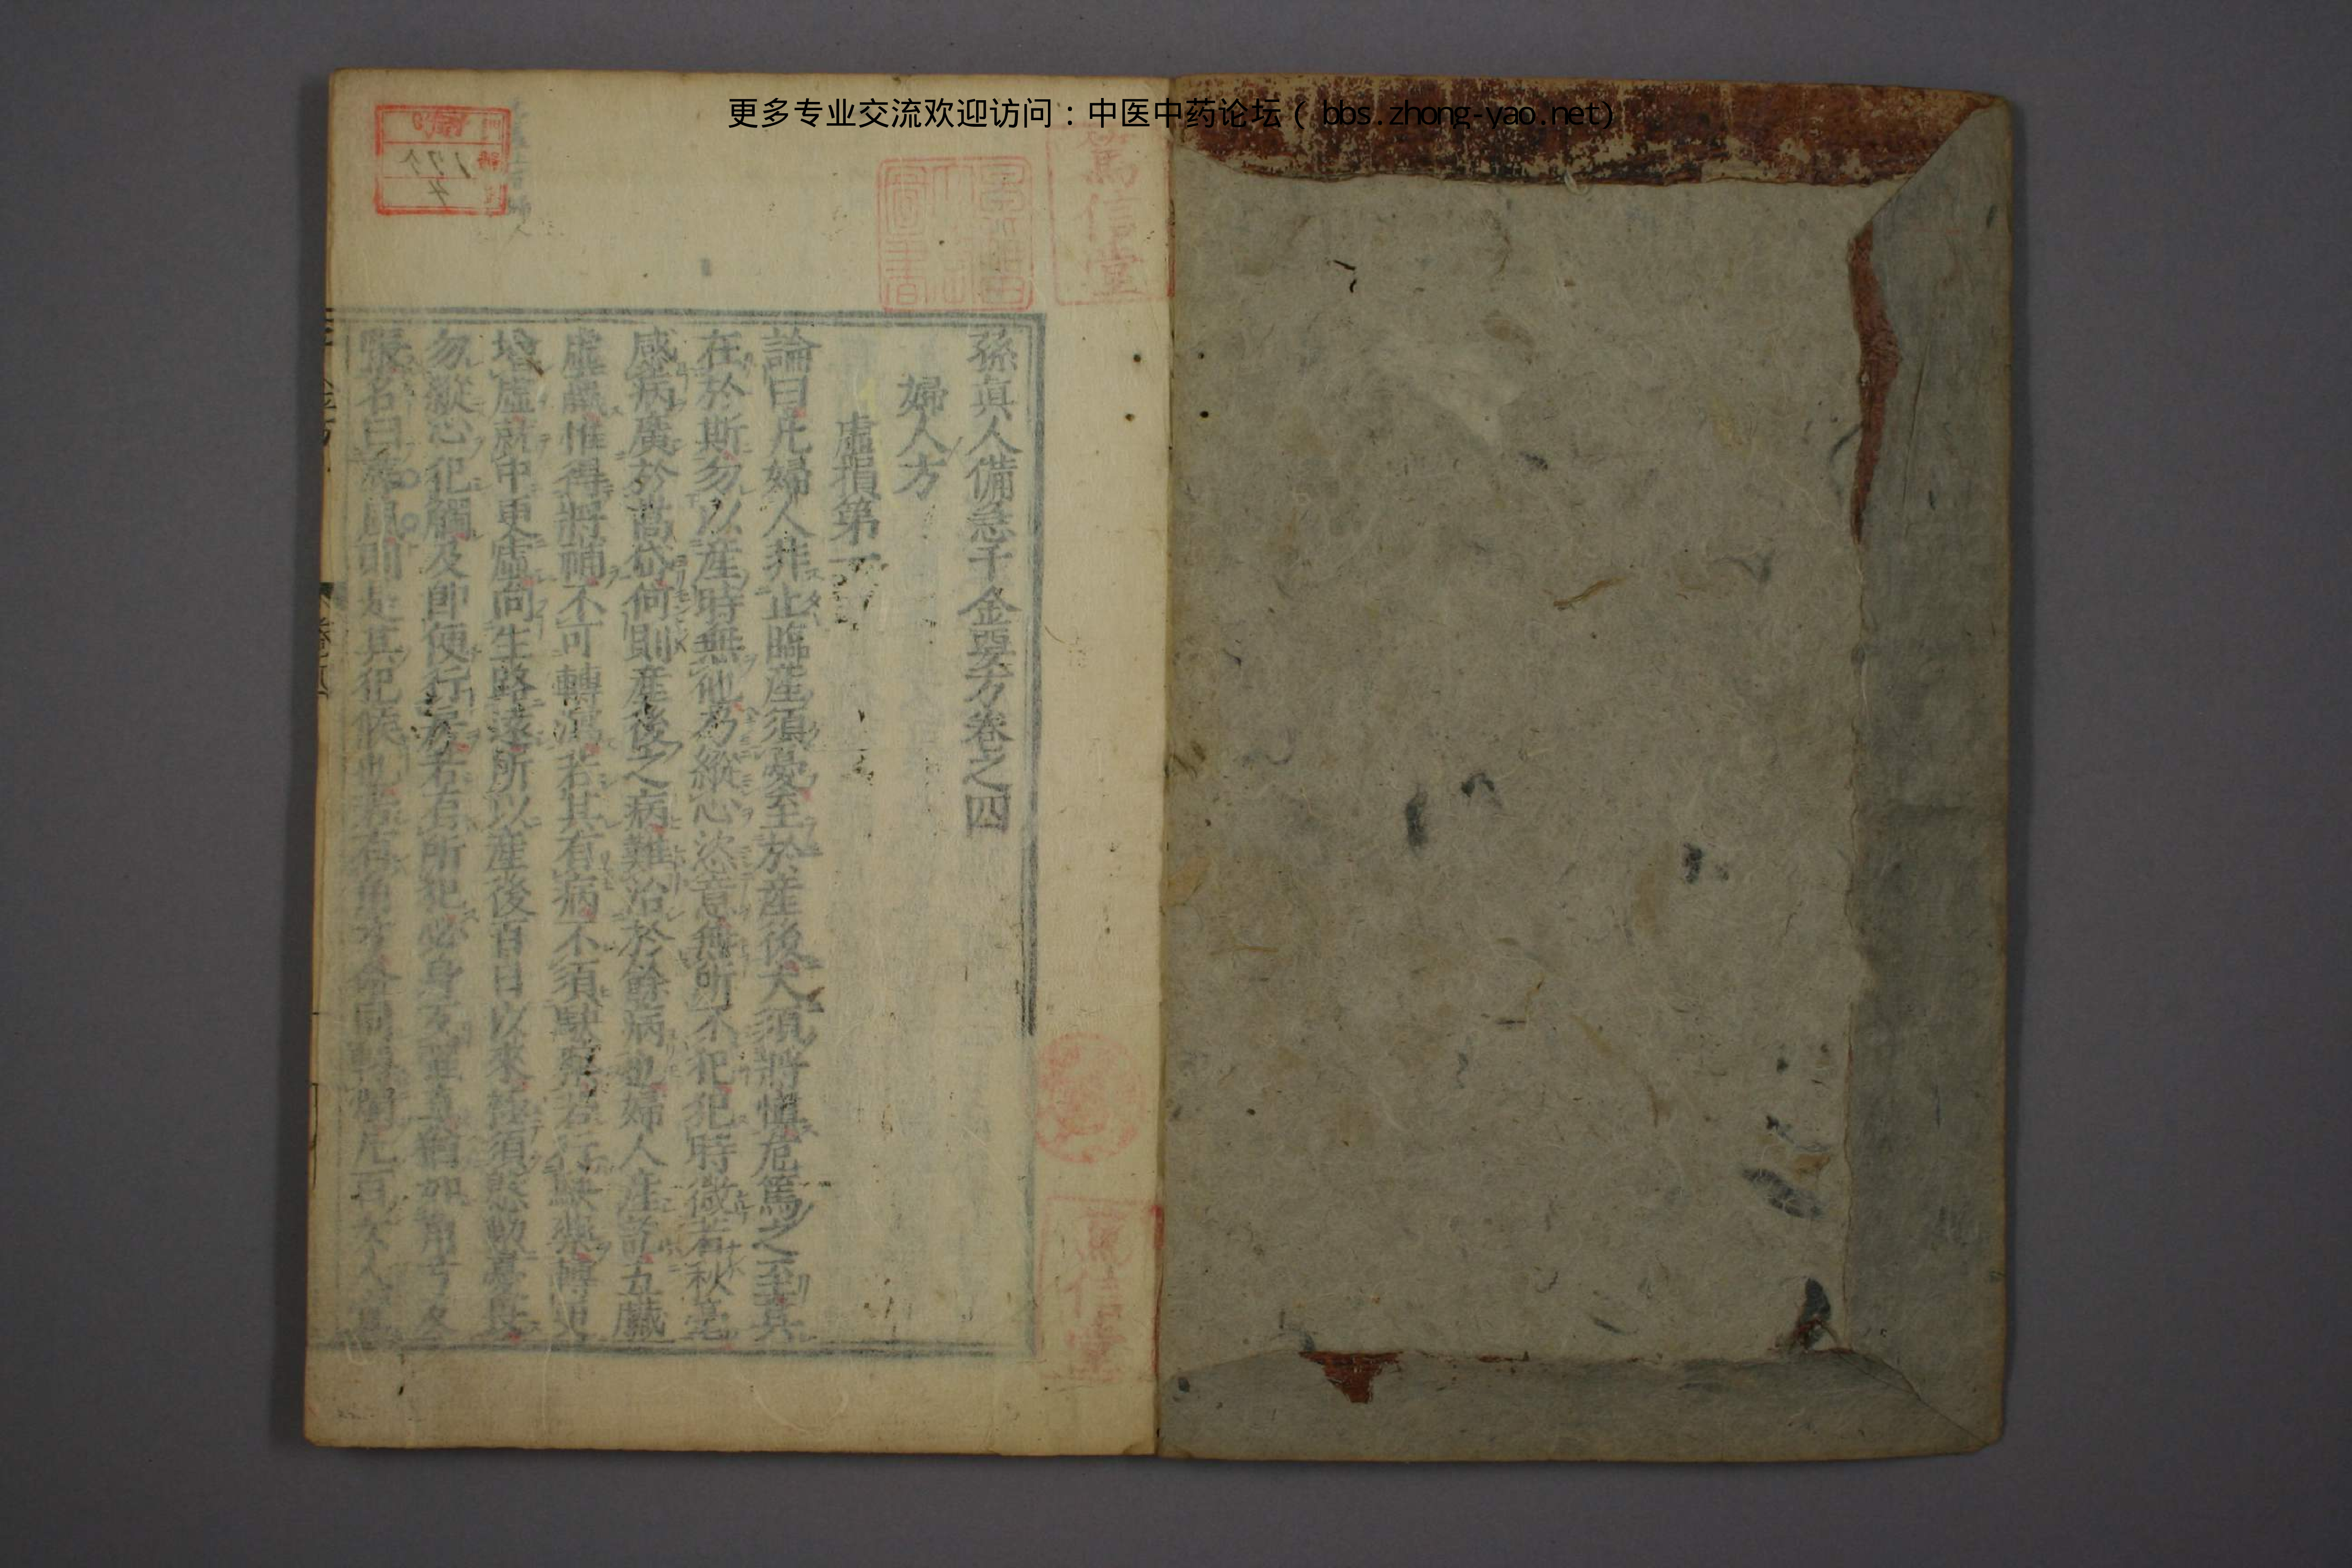 更多专业交流欢迎访问：中医中药论坛（ bbs.zhong-yao.net)
篤信堂
孫眞人備急千金要方卷之四
婦人方
虛損第一
論曰凢婦人非止臨産須憂至於産後大須將愼危篤之至其
在於斯勿以産時無他乃縱心恣意無所不犯犯時微若秋毫
感病廣於嵩岱何則産後之病難治於餘病也婦人産訖五臟
虛羸惟得將補不可轉瀉若其有病不須駃藥若行駃藥轉更
增虛就中更虛向生路遠所以産後百日以來極須慇懃憂畏
勿縱心犯觸及即便行房若有所犯必身反強直猶如角弓反
張名曰蓐風則是其犯候也若有角弓命同轉燭凢百女人宜
篤信堂